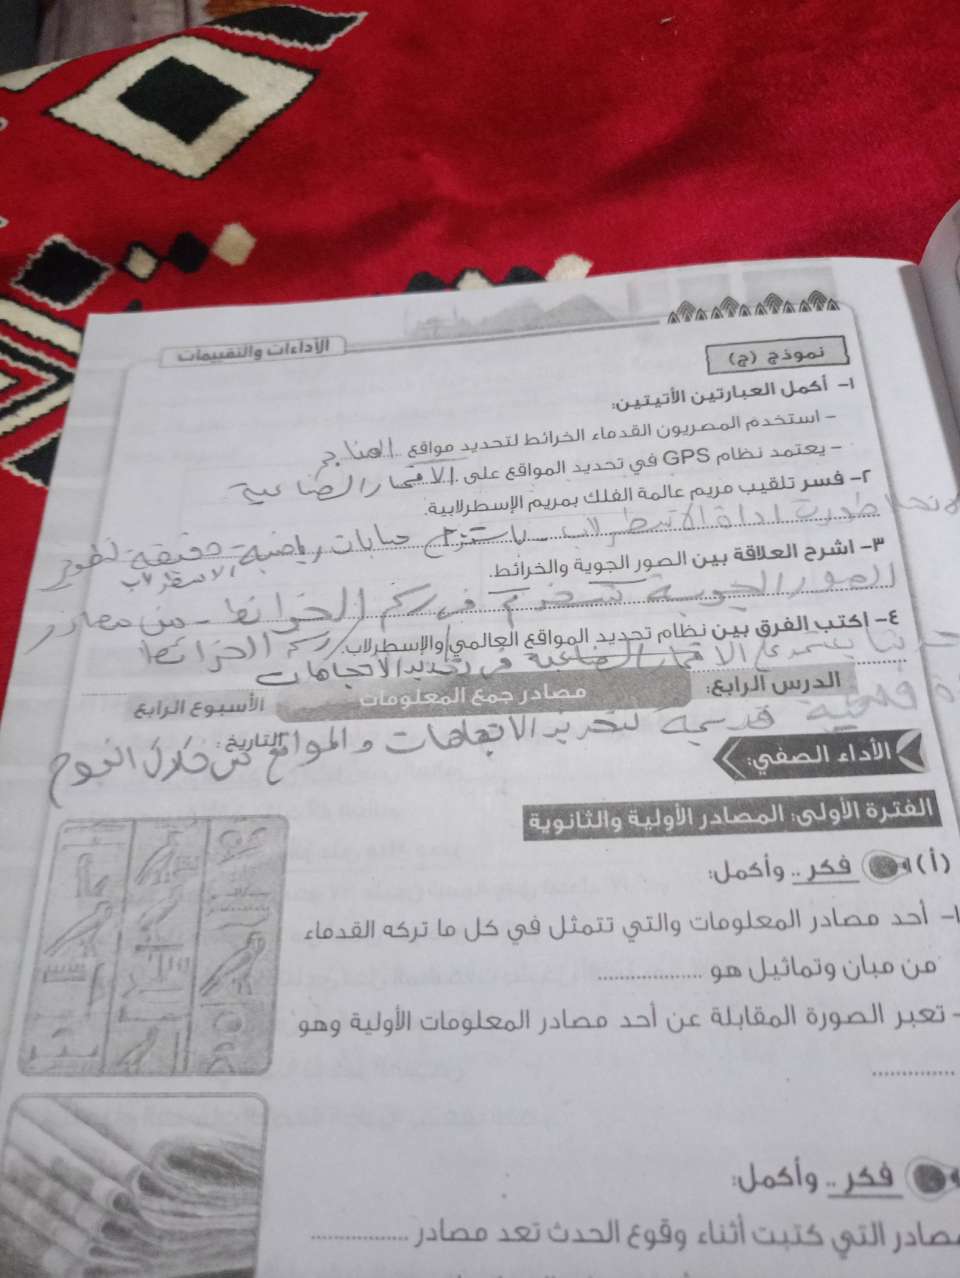 الأداءات والتقييمات
نموذج (ج)
١- أكمل العبارتين الآتيتين:
- استخدم المصريون القدماء الخرائط لتحديد مواقع المناجم
- يعتمد نظام GPS في تحديد المواقع على الاقمار الصناعية
٢- فسر تلقيب مريم عالمة الفلك بمريم الإسطرلابية.
لانها طورت اداة الاسطرلاب باستخدام حسابات رياضية دقيقة لتطوير
الاسطرلاب
٣- اشرح العلاقة بين الصور الجوية والخرائط.
الصور الجوية تستخدم في رسم الخرائط من مصادر
رسم الخرائط
٤- اكتب الفرق بين نظام تحديد المواقع العالمي والإسطرلاب.
يعتمد على الاقمار الصناعية في تحديد الاتجاهات
الدرس الرابع:
مصادر جمع المعلومات
الأسبوع الرابع
قديمة لتحديد الاتجاهات والمواقع من خلال النجوم
التاريخ:
الأداء الصفي:
الفترة الأولى: المصادر الأولية والثانوية
(أ) فكر .. وأكمل:
١- أحد مصادر المعلومات والتي تتمثل في كل ما تركه القدماء
من مبان وتماثيل هو ..............
- تعبر الصورة المقابلة عن أحد مصادر المعلومات الأولية وهو
..............
فكر .. وأكمل:
التي كتبت أثناء وقوع الحدث تعد مصادر ..............